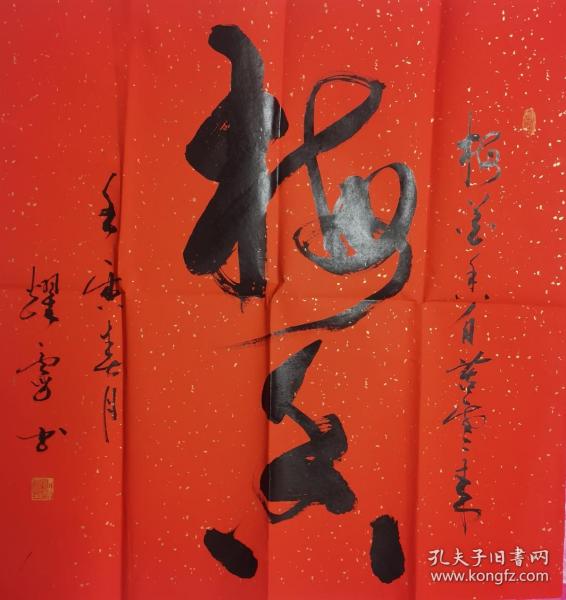 梅花香自苦寒来
梅香
壬寅春月
耀 书
孔夫子旧书网
www.kongfz.com